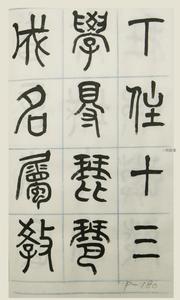 下住十三
學得琵琶
成名屬教
P-180